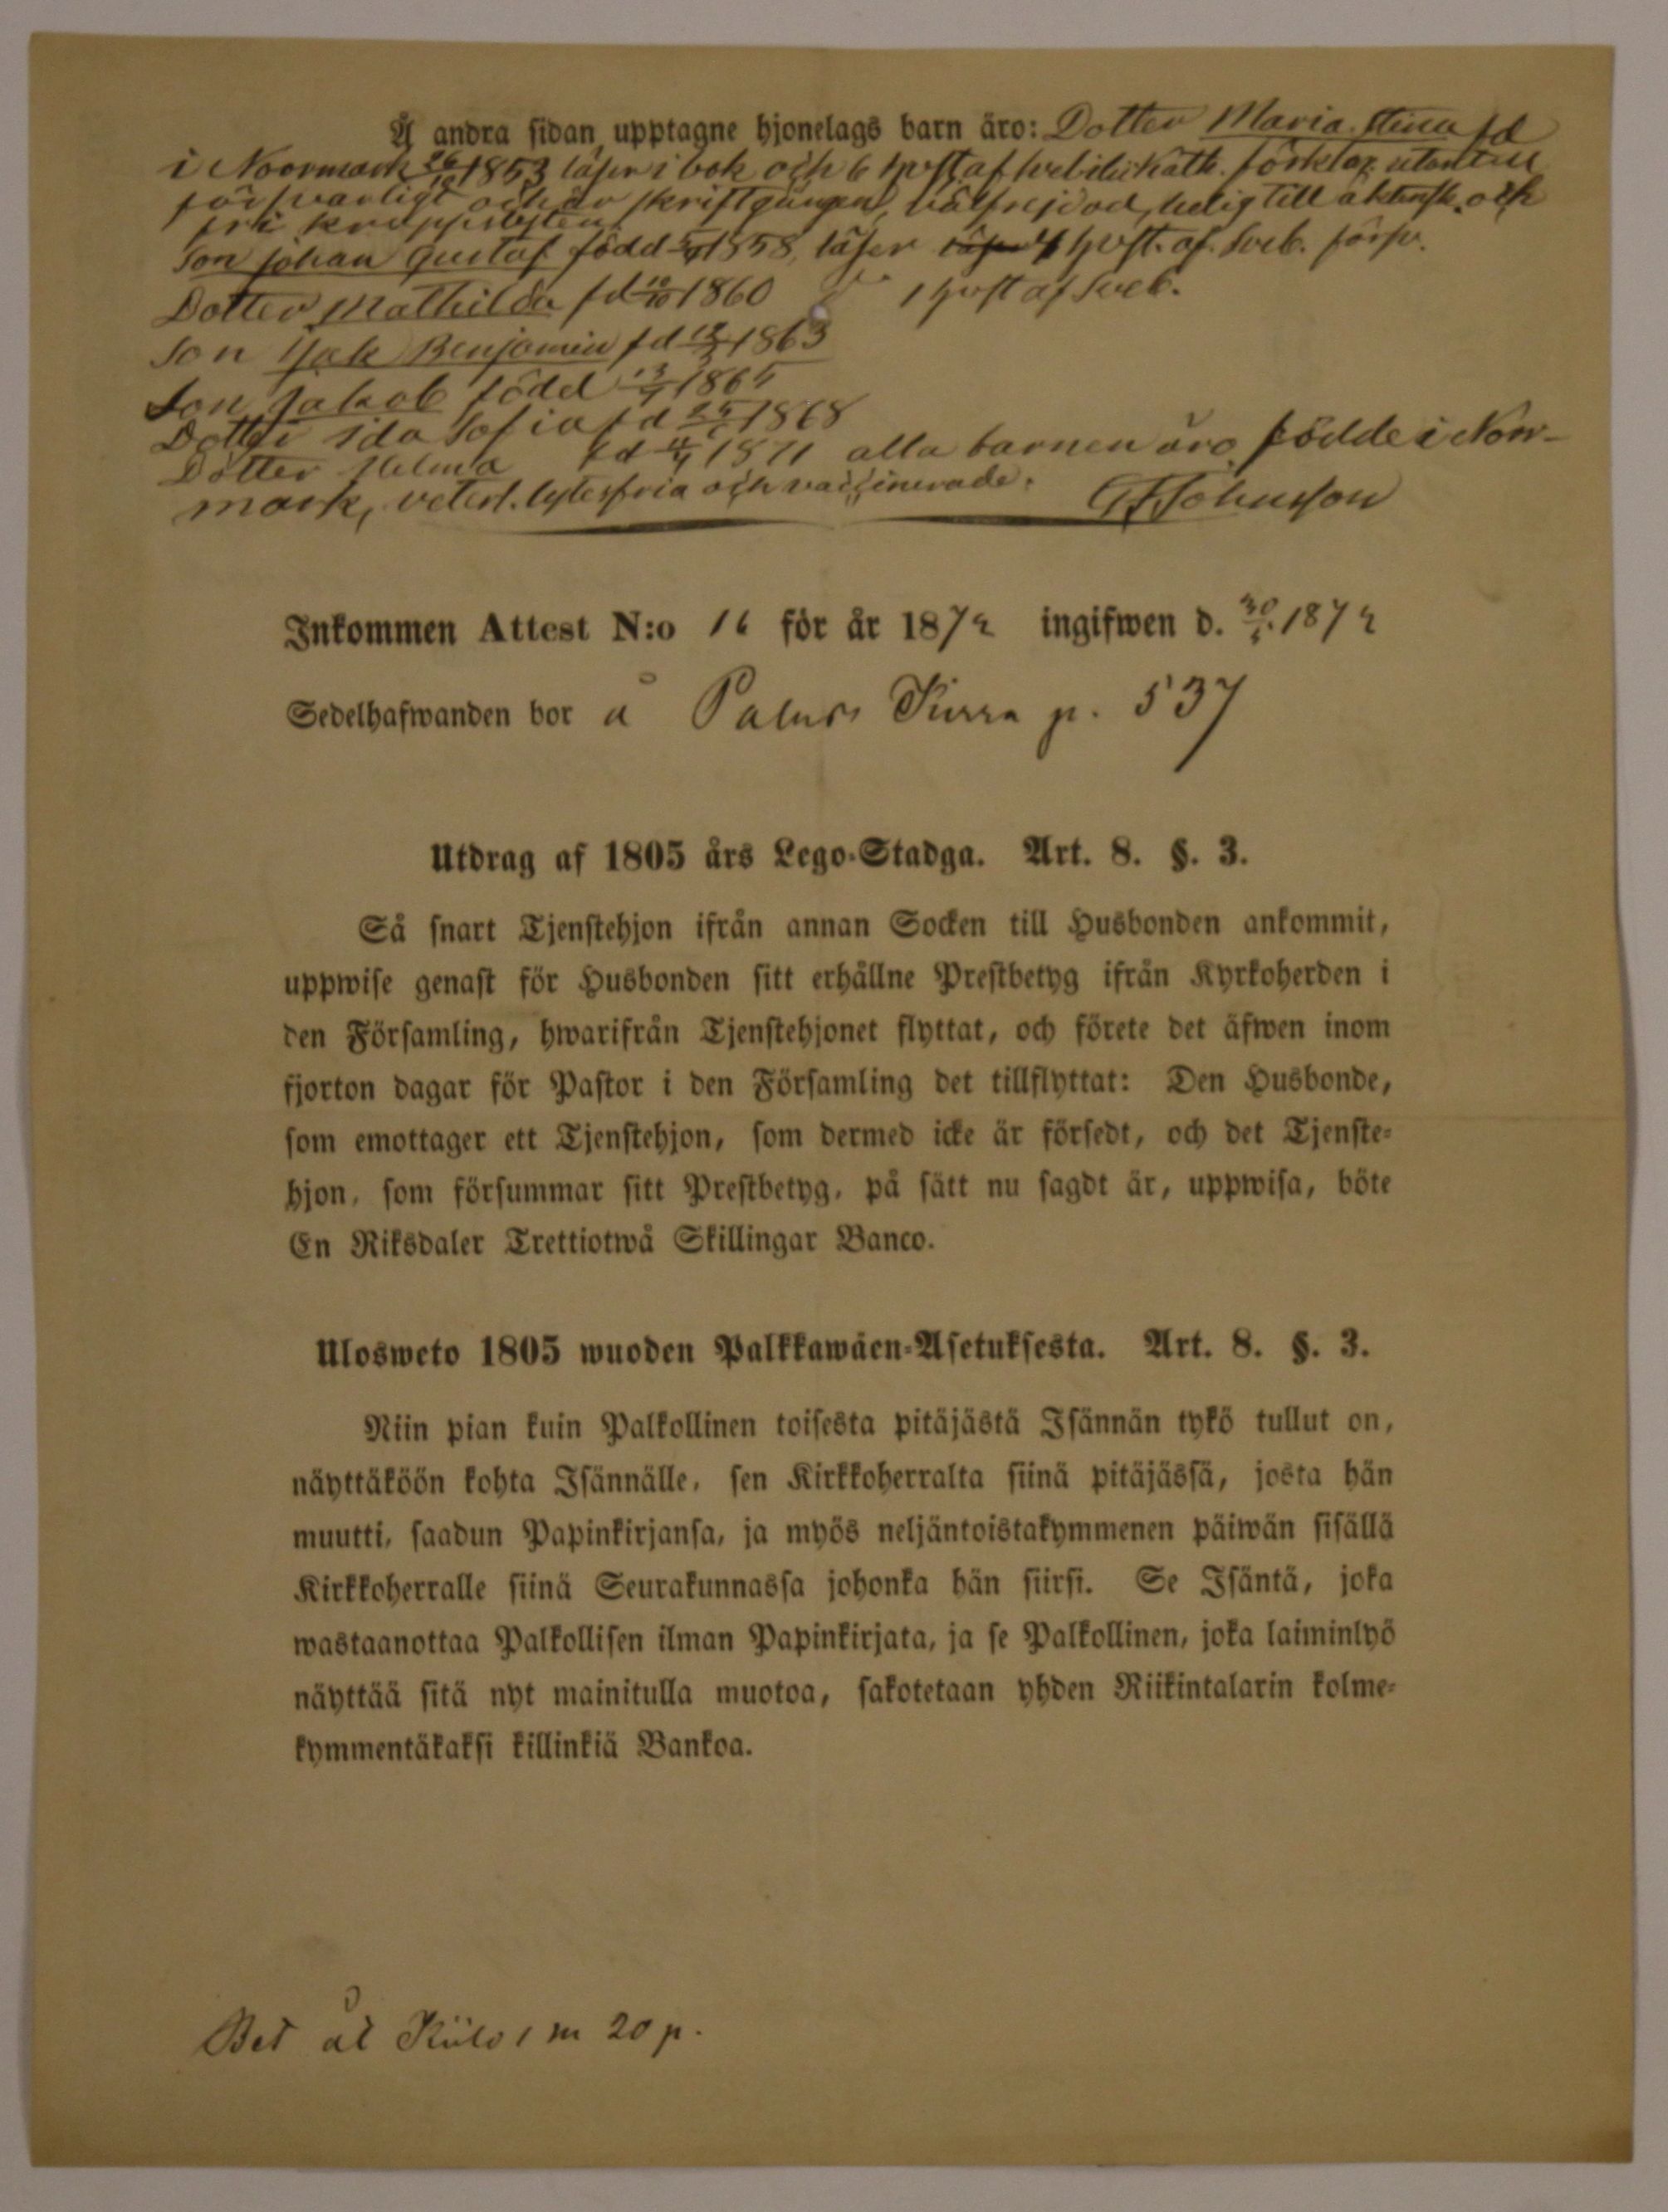 Å andra sidan upptagne hjonelags barn äro: Dotter Maria Stina fd
i Noormark 26/10 1853 läser i bok och 6 hvst. af Katk. förklar. utantill
försvarligt och är skriftgången, välfrejdad, ledig till äktensk. och
fri
Son Johan Gustaf född 1858, läser 4 hvst. af. Sveb. försv.
Dotter Mathilda fd 10/10 1860 d:o 1 hvst af Sveb.
Son Isak Benjamin fd 1863
Son Jakob född
Dotter Ida Sofia fd 1868
Dotter Helma fd 1871 alla barnen äro födde i Norr-
mark, lytesfria och vaccinerade.
Inkommen Attest N:o 16 för år 1872 ingifwen d. 1872
Sedelhafwanden bor å p. 537
Utdrag af 1805 års Lego-Stadga. Art. 8. §. 3.
Så snart Tjenstehjon ifrån annan Socken till Husbonden ankommit,
uppwise genast för Husbonden sitt erhållne Prestbetyg ifrån Kyrkoherden i
den Församling, hwarifrån Tjenstehjonet flyttat, och förete det äfwen inom
fjorton dagar för Pastor i den Församling det tillflyttat: Den Husbonde,
som emottager ett Tjenstehjon, som dermed icke är försedt, och det Tjenste-
hjon, som försummar sitt Prestbetyg, på sätt nu sagdt är, uppwisa, böte
En Riksdaler Trettiotwå Skillingar Banco.
Ulosweto 1805 wuoden Palkkawäen-Asetuksesta. Art. 8. §. 3.
Niin pian kuin Palkollinen toisesta pitäjästä Isännän tykö tullut on,
näyttäköön kohta Isännälle, sen Kirkkoherralta siinä pitäjässä, josta hän
muutti, saadun Papinkirjansa, ja myös neljäntoistakymmenen päiwän sisällä
Kirkkoherralle siinä Seurakunnassa johonka hän siirsi. Se Isäntä, joka
wastaanottaa Palkollisen ilman Papinkirjata, ja se Palkollinen, joka laiminlyö
näyttää sitä nyt mainitulla muotoa, sakotetaan yhden Riikintalarin kolme-
kymmentäkaksi killinkiä Bankoa.
Bet åt 1 m 20 p.